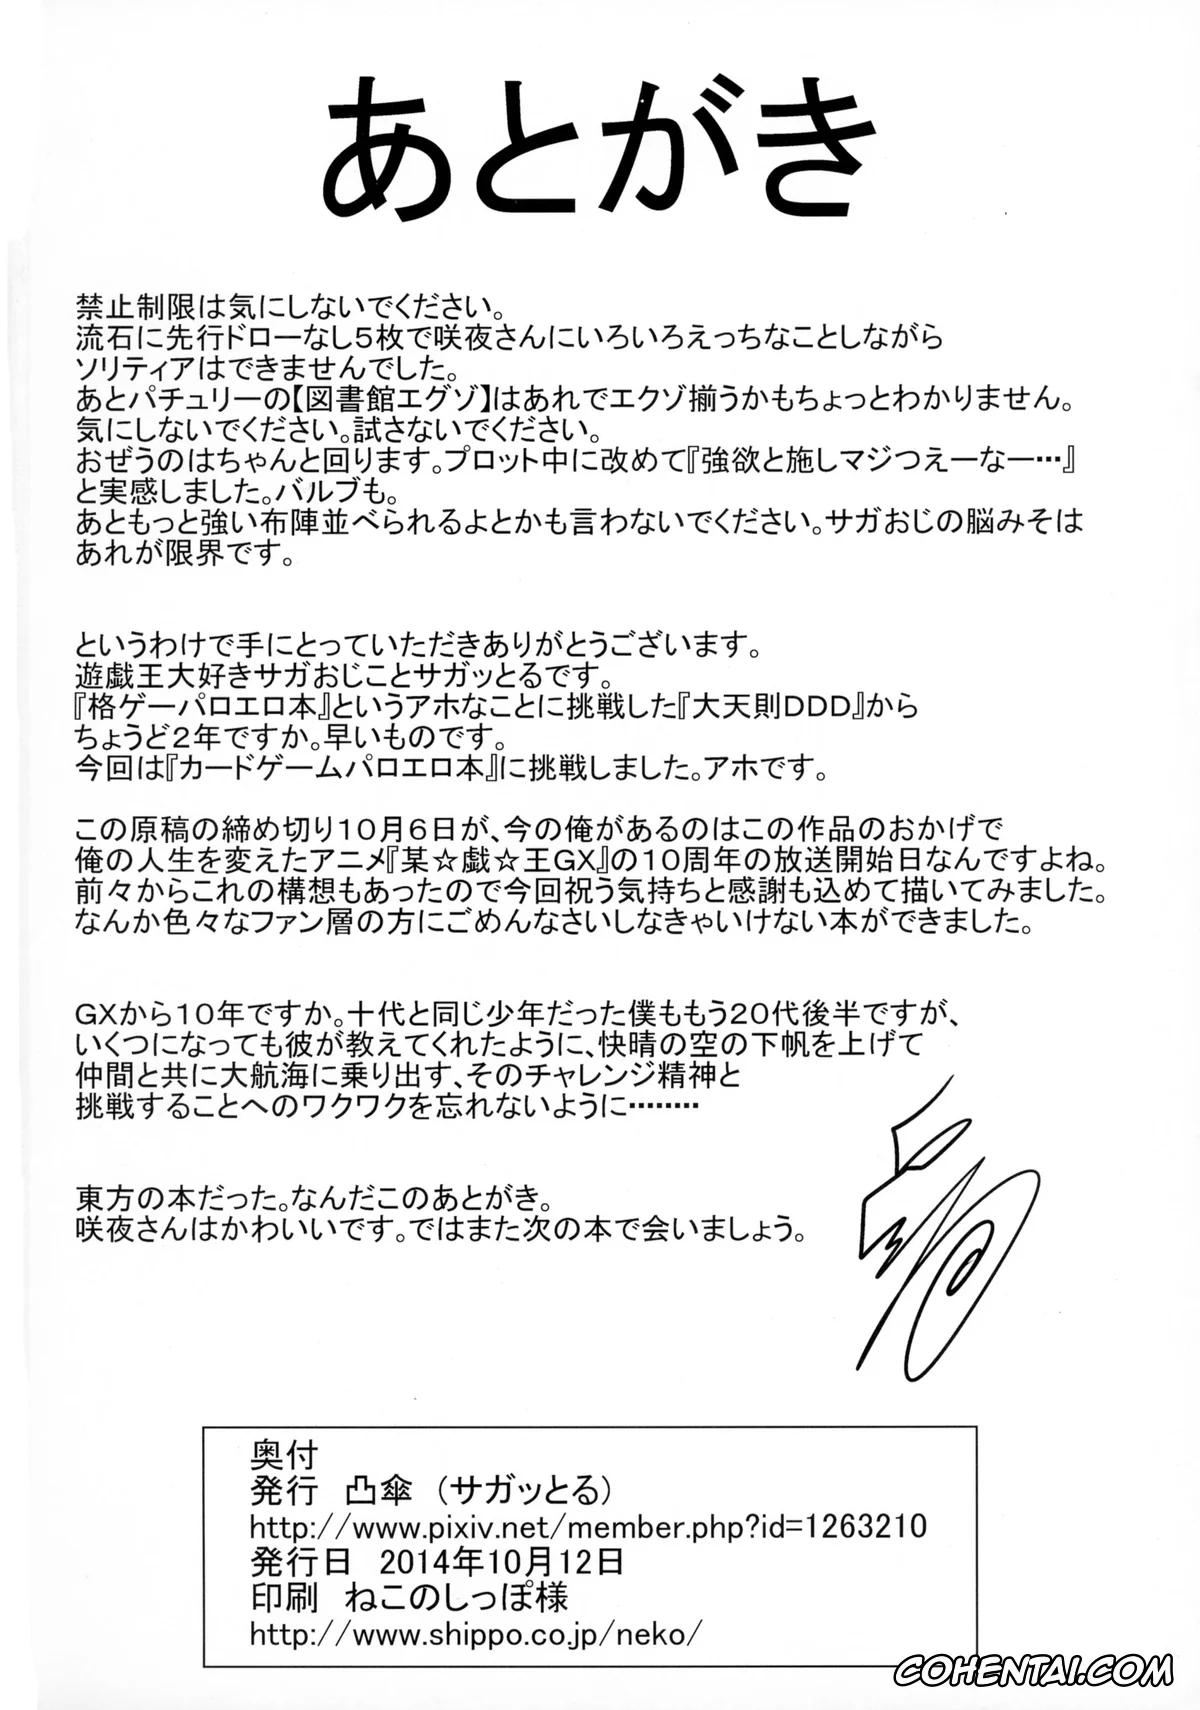 あとがき
禁止制限は気にしないでください。
流石に先行ドローなし5枚で咲夜さんにいろいろえっちなことしながら
ソリティアはできませんでした。
あとパチュリーの【図書館エグゾ】はあれでエクゾ揃うかもちょっとわかりません。
気にしないでください。試さないでください。
おぜうのはちゃんと回ります。プロット中に改めて『強欲と施しマジつえーなー…』
と実感しました。バルブも。
あともっと強い布陣並べられるよとかも言わないでください。サガおじの脳みそは
あれが限界です。
というわけで手にとっていただきありがとうございます。
遊戯王大好きサガおじことサガッとるです。
『格ゲーパロエロ本』というアホなことに挑戦した『大天則DDD』から
ちょうど2年ですか。早いものです。
今回は『カードゲームパロエロ本』に挑戦しました。アホです。
この原稿の締め切り10月6日が、今の俺があるのはこの作品のおかげで
俺の人生を変えたアニメ『某☆戯☆王GX』の10周年の放送開始日なんですよね。
前々からこれの構想もあったので今回祝う気持ちと感謝も込めて描いてみました。
なんか色々なファン層の方にごめんなさいしなきゃいけない本ができました。
GXから10年ですか。十代と同じ少年だった僕ももう20代後半ですが、
いくつになっても彼が教えてくれたように、快晴の空の下帆を上げて
仲間と共に大航海に乗り出す、そのチャレンジ精神と
挑戦することへのワクワクを忘れないように………
東方の本だった。なんだこのあとがき。
咲夜さんはかわいいです。ではまた次の本で会いましょう。
奥付
発行　凸傘　（サガッとる）
http://www.pixiv.net/member.php?id=1263210
発行日　2014年10月12日
印刷　ねこのしっぽ様
http://www.shippo.co.jp/neko/
COHENTAI.COM